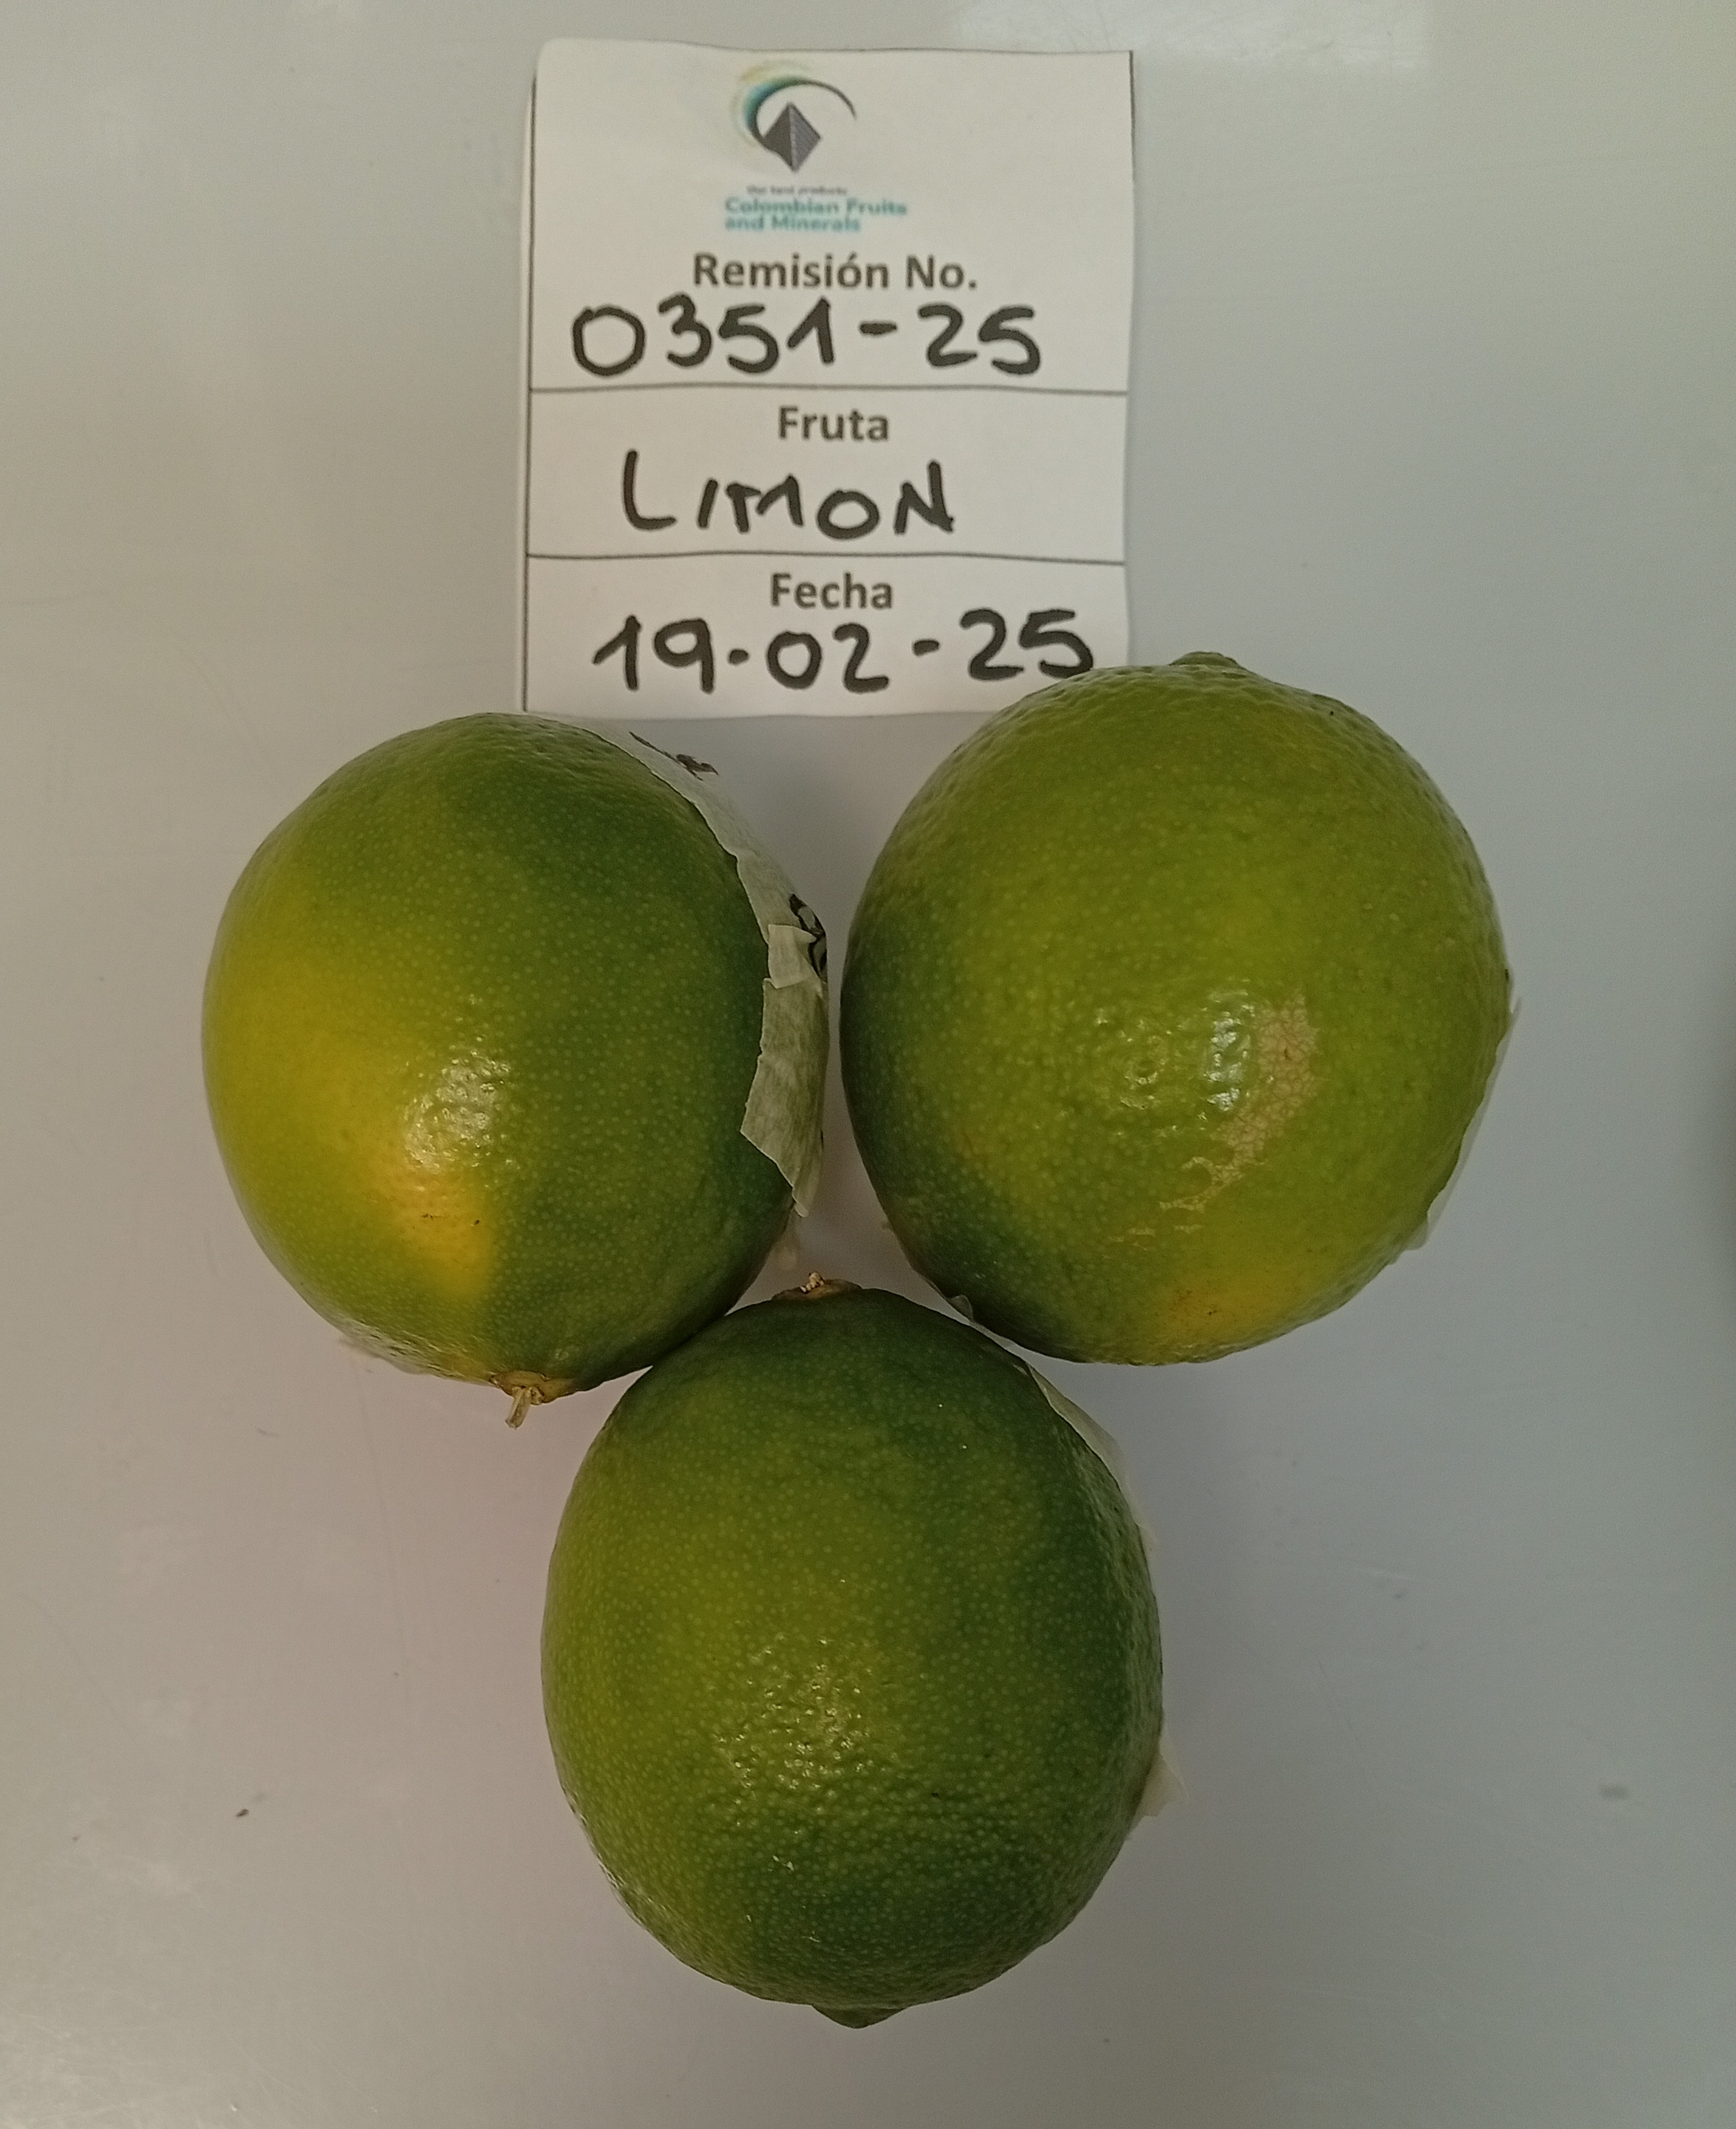 Our best products
Colombian Fruits
and Minerals
Remisión No.
0351-25
Fruta
LIMON
Fecha
19-02-25